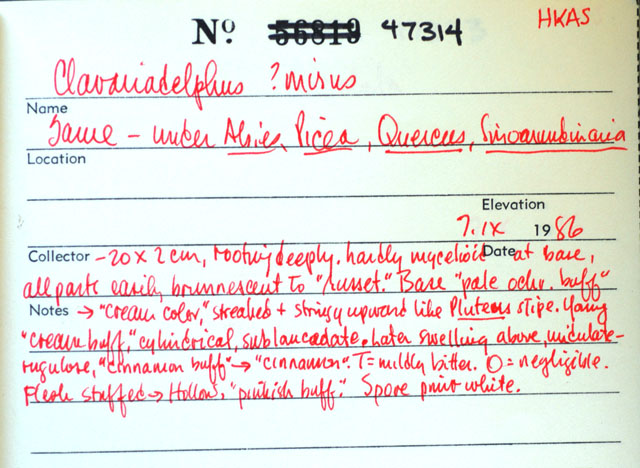 HKAS
Nº 56819 47314
Clavariadelphus ? mirus
Name
Same - under Abies, Picea, Quercus, Sinoarundinaria
Location
Elevation
7. IX 1986
Collector Date
-20 x 2 cm, rooting deeply, hardly mycelioid at base,
all parts easily brunnescent to "russet." Base "pale ochr. buff"
Notes → "cream color," streaked + stringy upward like Pluteus stipe. Young
"cream buff," cylindrical, sublanceolate, later swelling above,
rugulose, "cinnamon buff" → "cinnamon". T = mildly bitter. O = negligible.
Flesh stuffed → Hollow, "pinkish buff." Spore print white.